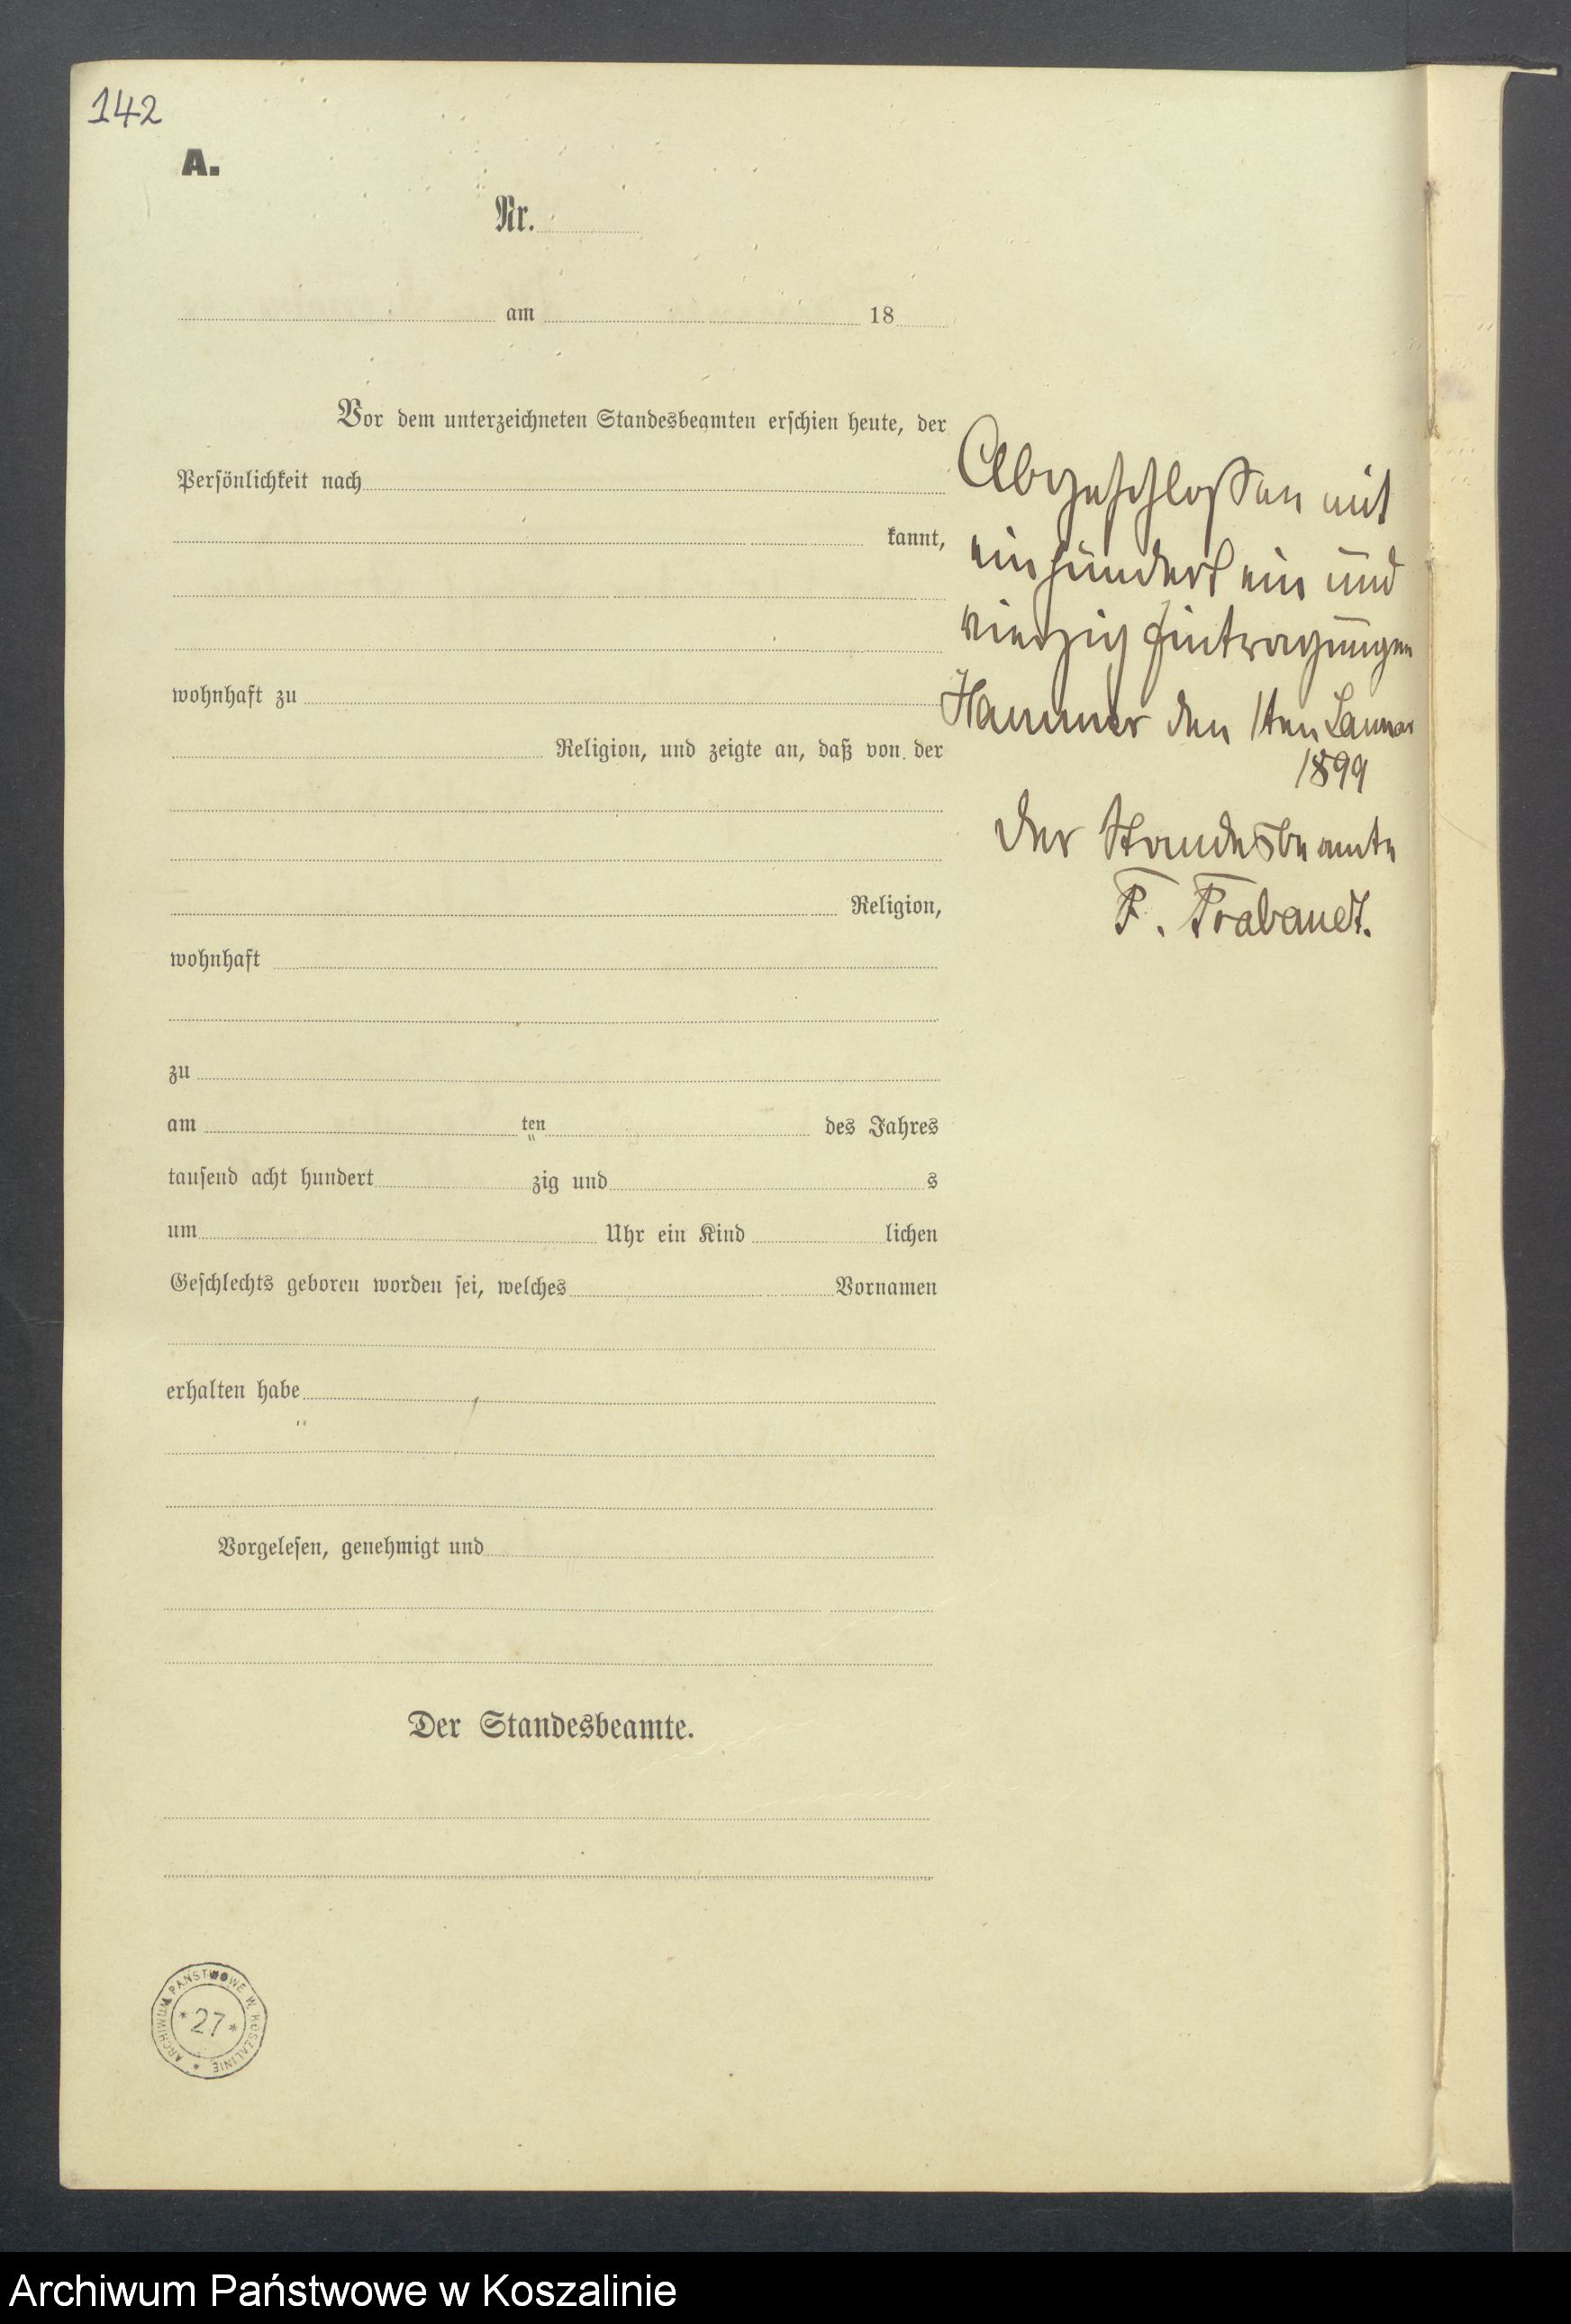 142
A.
Nr.
am 18
Vor dem unterzeichneten Standesbeamten erschien heute, der
Persönlichkeit nach
kannt,
wohnhaft zu
Religion, und zeigte an, daß von der
Religion,
wohnhaft
zu
am ten des Jahres
tausend acht hundert zig und s
um Uhr ein Kind lichen
Geschlechts geboren worden sei, welches Vornamen
erhalten habe
Vorgelesen, genehmigt und
Der Standesbeamte.
Abgeschloßen mit
einhundert ein und
vierzig Eintragungen
Hammer den 1ten Januar
1899
Der Standesbeamte
F. Trabandt.
ARCHIWUM PAŃSTWOWE W KOSZALINIE
* 27 *
Archiwum Państwowe w Koszalinie